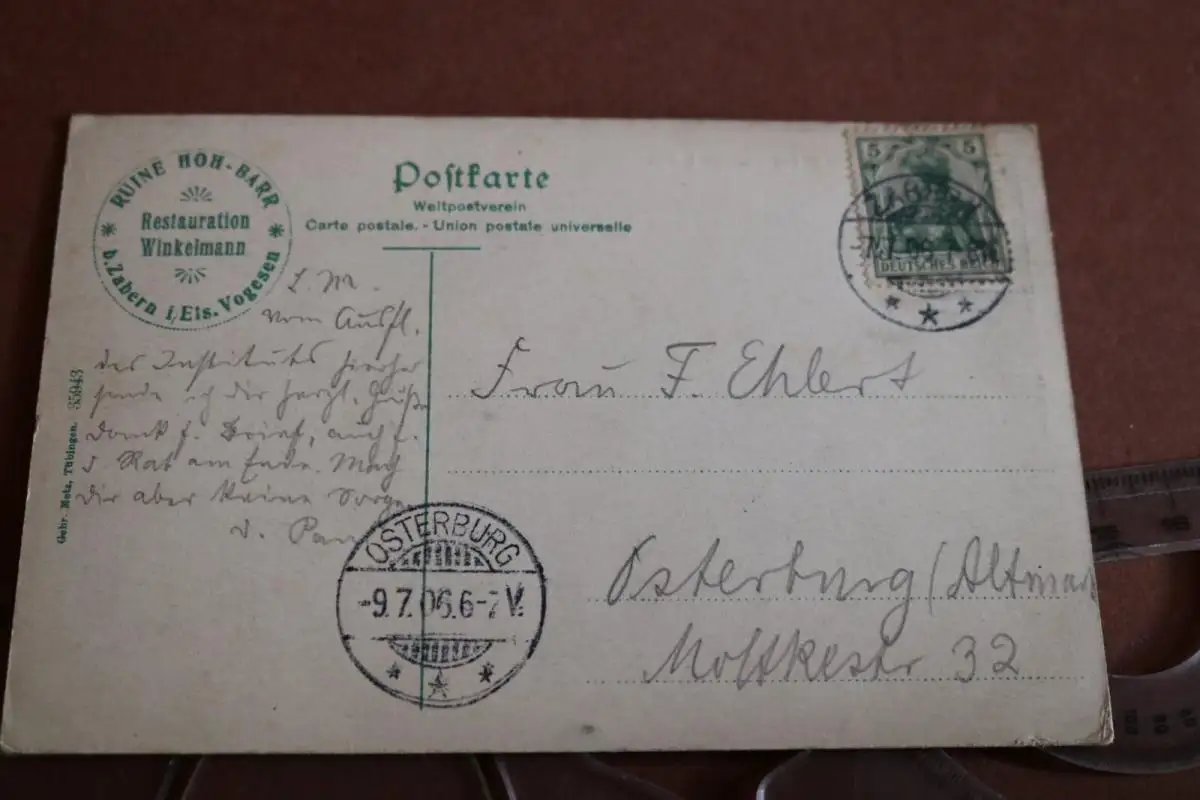 RUINE HOH-BARR
Restauration
Winkelmann
b. Zabern i/Els. Vogesen
Postkarte
Weltpostverein
Carte postale. - Union postale universelle
5 5
DEUTSCHES REICH
ZABERN
L. M.
vom Ausfl.
des Instituts hierher
sende ich dir herzl. Grüße
Dank f. Brief, auch f.
d. Rat am Ende. Mach
dir aber keine Sorge
Frau F. Ehlert
Osterburg (Altmark
Moltkestr 32
OSTERBURG
-9.7.06.6-7V.
Gebr. Metz, Tübingen. 35943